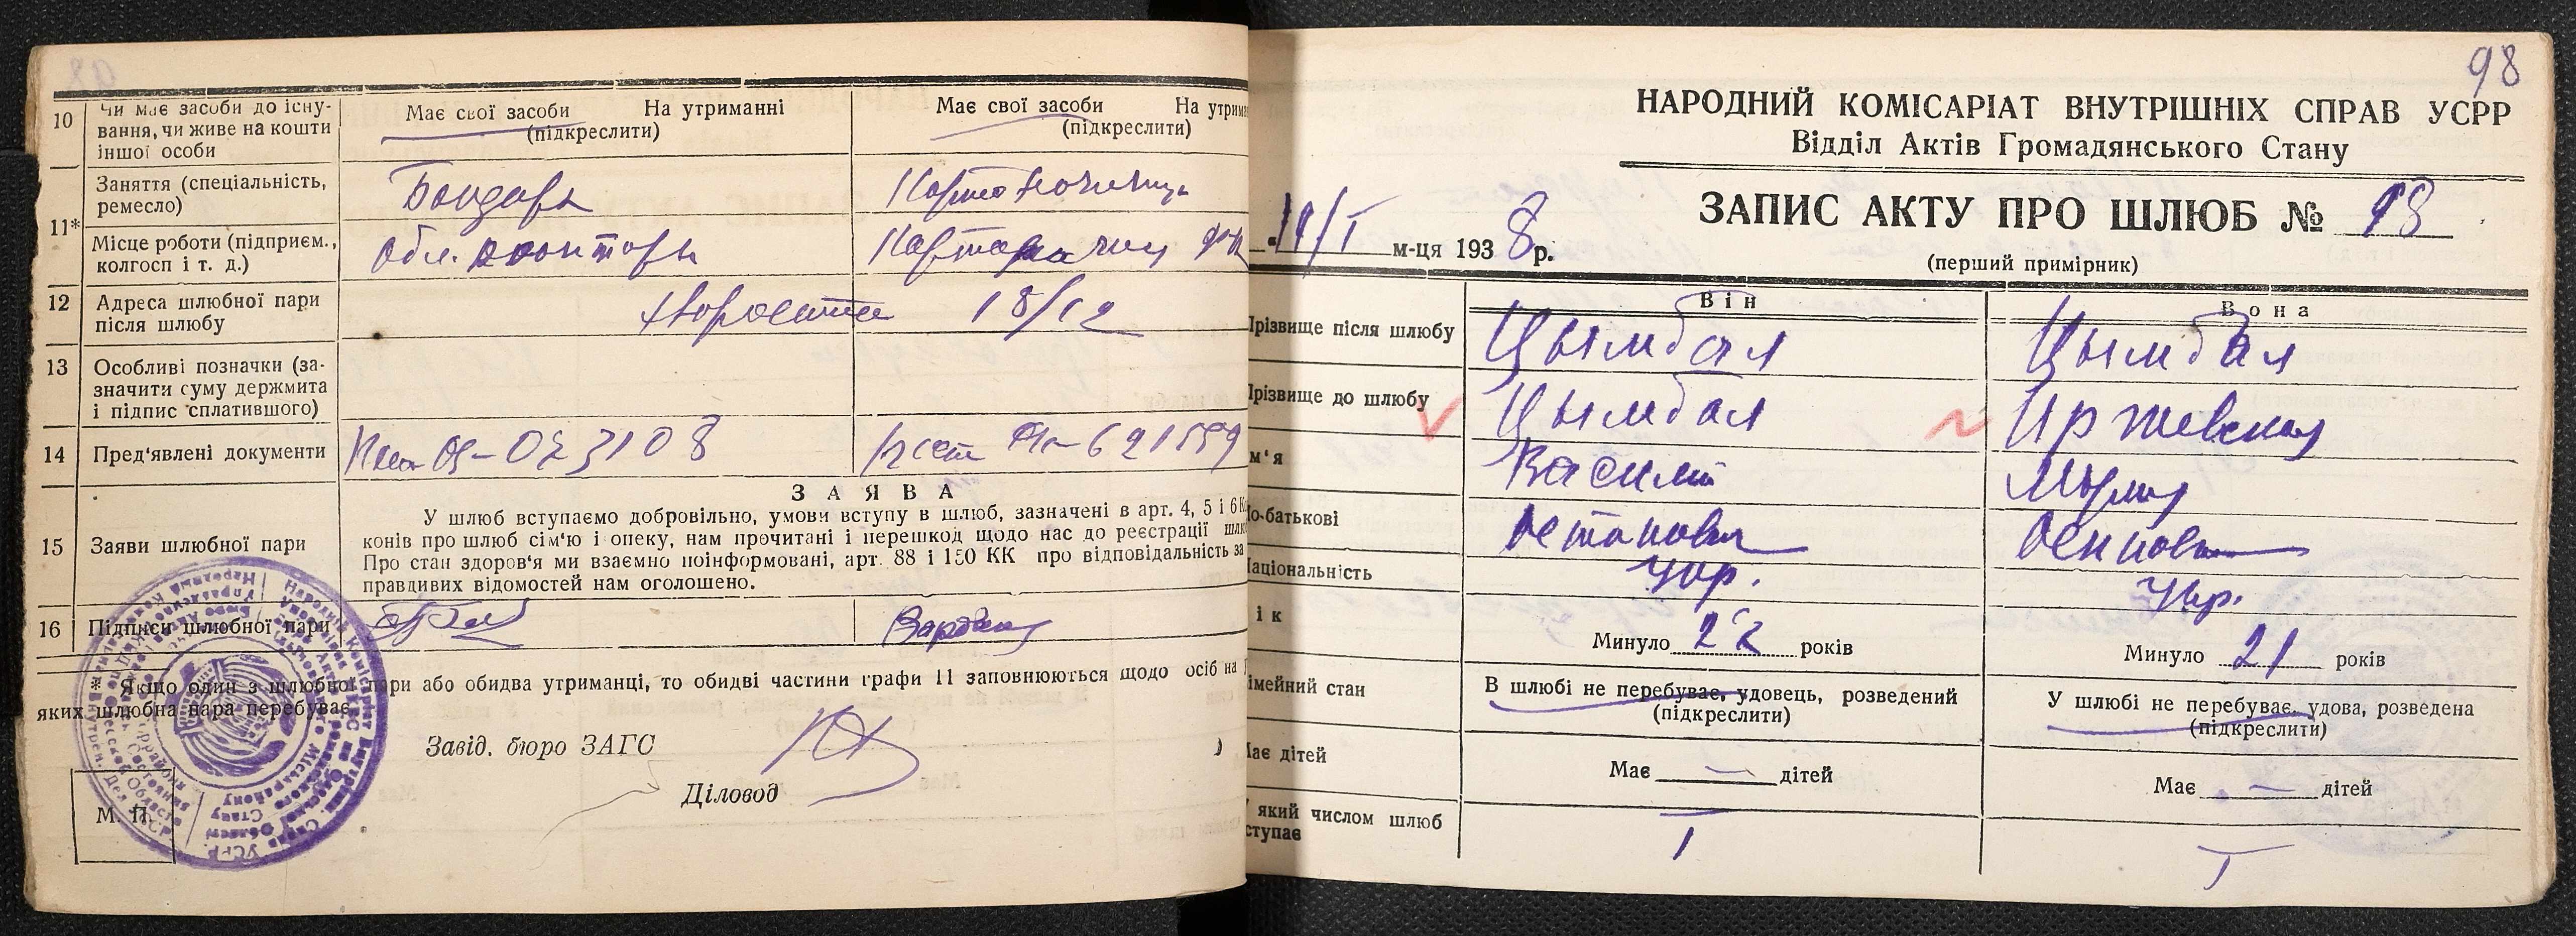 10
Чи має засоби до існу-
вання, чи живе на кошти
іншої особи
Має свої засоби На утриманні
(підкреслити)
Має свої засоби На утрима
(підкреслити)
11*
Заняття (спеціальність,
ремесло)
Бондарь
Місце роботи (підприєм.,
колгосп і т. д.)
Обл. контора
12
Адреса шлюбної пари
після шлюбу
18/12
13
Особливі позначки (за-
значити суму держмита
і підпис сплатившого)
14
Пред'явлені документи
15
Заяви шлюбної пари
ЗАЯВА
У шлюб вступаємо добровільно, умови вступу в шлюб, зазначені в арт. 4, 5 і 6 К
конів про шлюб сім'ю і опеку, нам прочитані і перешкод щодо нас до реєстрації шлю
Про стан здоров'я ми взаємно поінформовані, арт. 88 і 150 КК про відповідальність за
правдивих відомостей нам оголошено.
16
Підписи шлюбної пари
* Якщо один з шлюбної пари або обидва утриманці, то обидві частини графи 11 заповнюються щодо осіб на
яких шлюбна пара перебуває
Завід. бюро ЗАГС
Діловод
М. П.
98
НАРОДНИЙ КОМІСАРІАТ ВНУТРІШНІХ СПРАВ УСРР
Відділ Актів Громадянського Стану
ЗАПИС АКТУ ПРО ШЛЮБ № 98
м-ця 1938 р.
(перший примірник)
Він
Вона
Прізвище після шлюбу
Цымбал
Цымбал
Прізвище до шлюбу
Цымбал
Иржевская
м'я
Василий
Мария
о-батькові
Остапович
Осиповна
аціональність
Укр.
Укр.
ік
Минуло 22 років
Минуло 21 років
імейний стан
В шлюбі не перебуває, удовець, розведений
(підкреслити)
У шлюбі не перебуває, удова, розведена
(підкреслити)
Має дітей
Має — дітей
Має — дітей
який числом шлюб
ступає
I
I